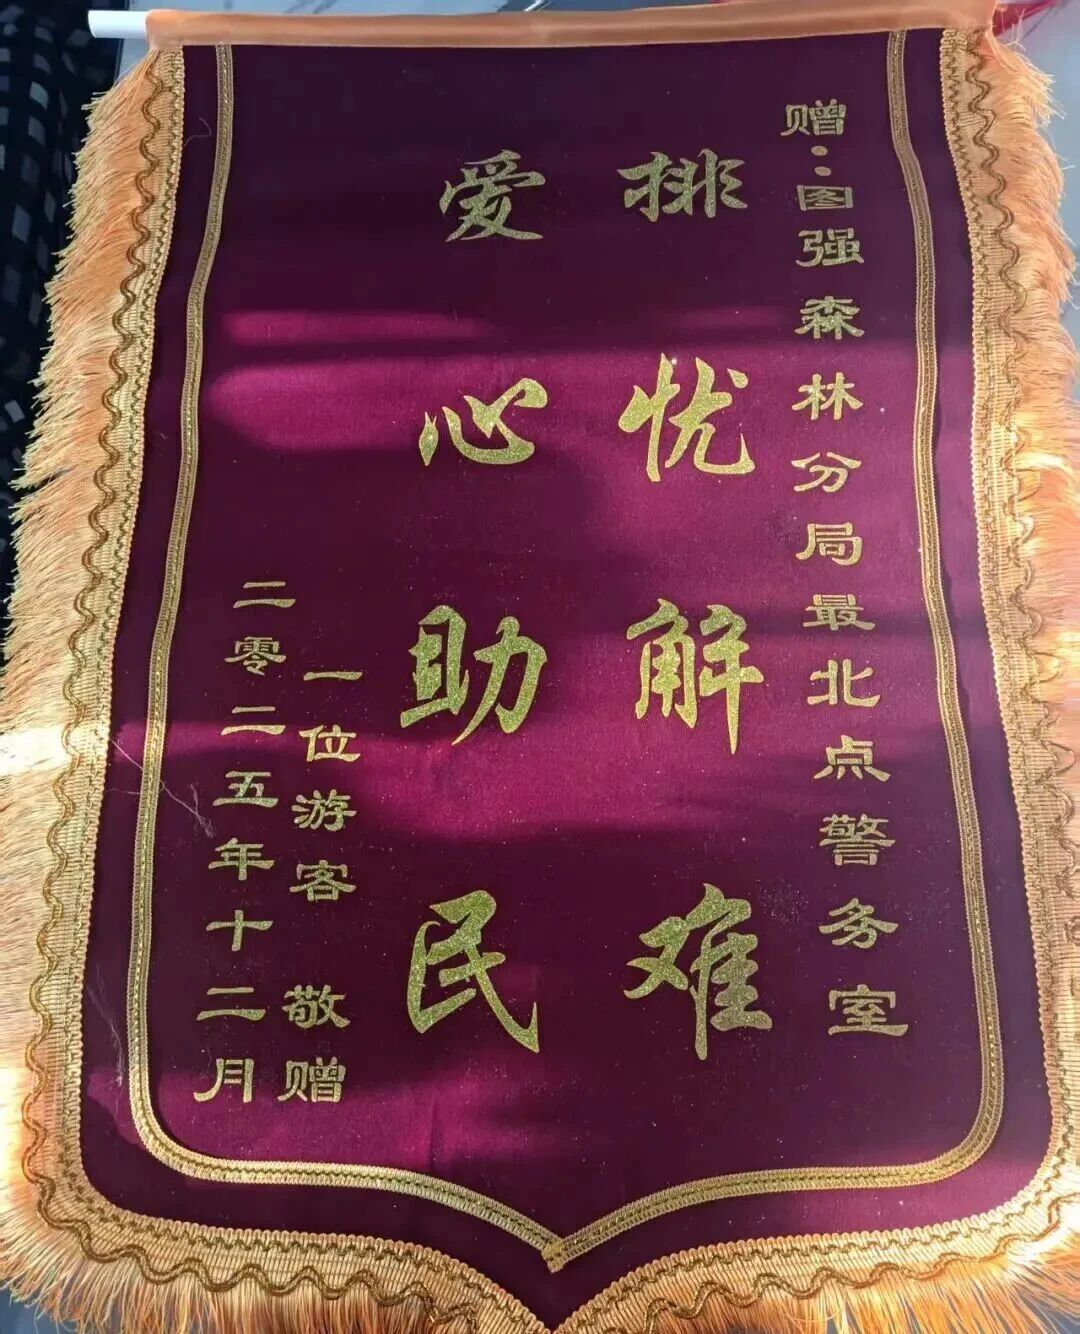 赠：图强森林分局最北点警务室
排忧解难
爱心助民
一位游客 敬赠
二零二五年十二月